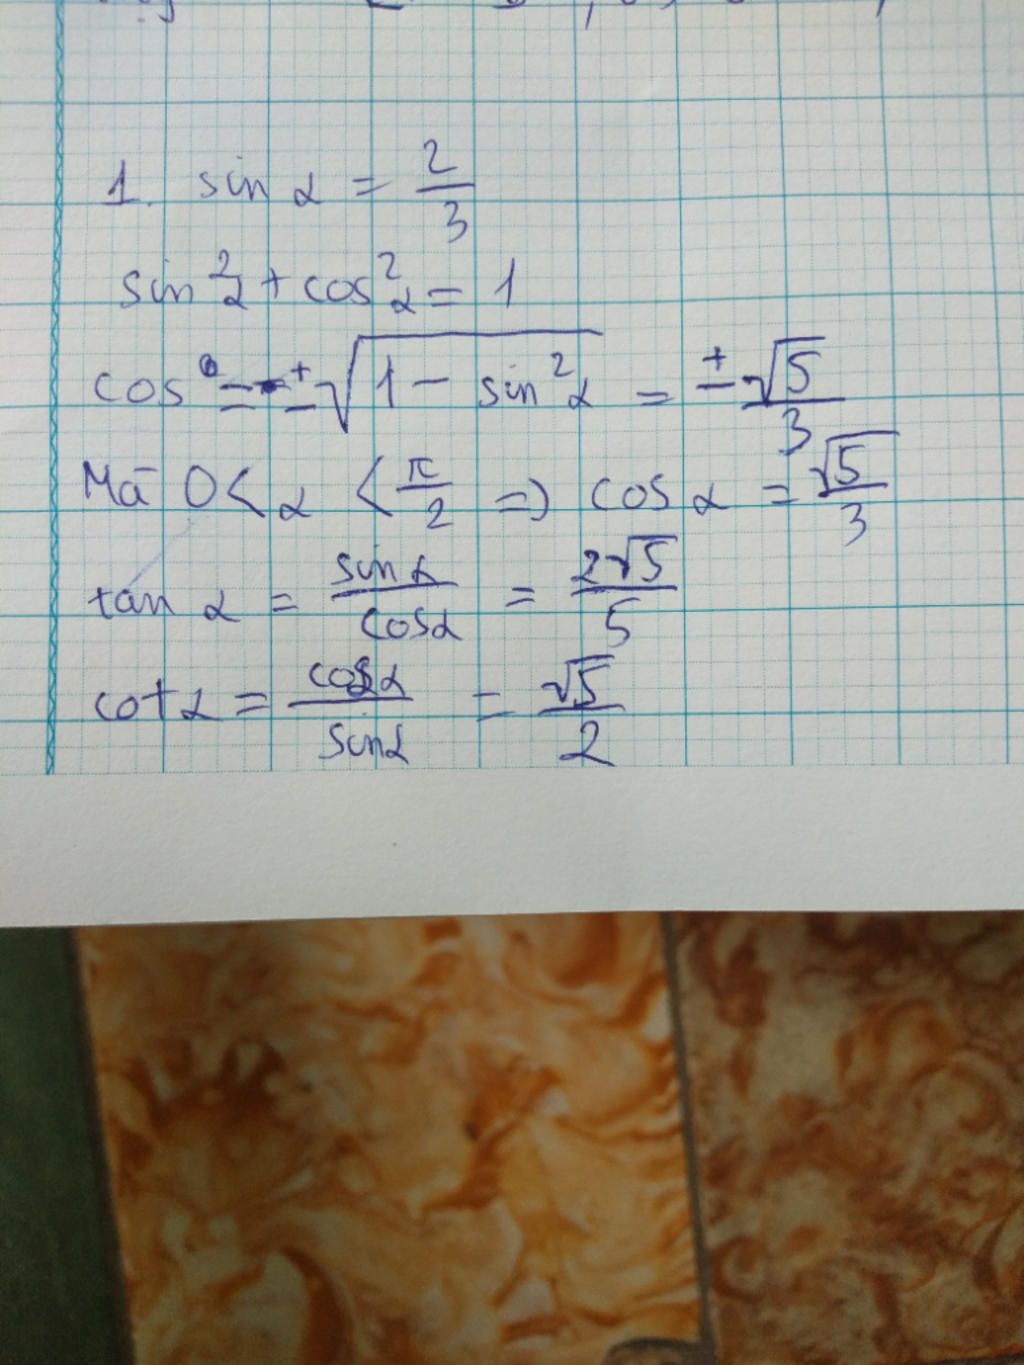 1. sin α = 2/3
sin²α + cos²α = 1
cos = ±√(1 - sin²α) = ±√5/3
Mà 0 < α < π/2 => cos α = √5/3
tan α = sinα/cosα = 2√5/5
cot α = cosα/sinα = √5/2